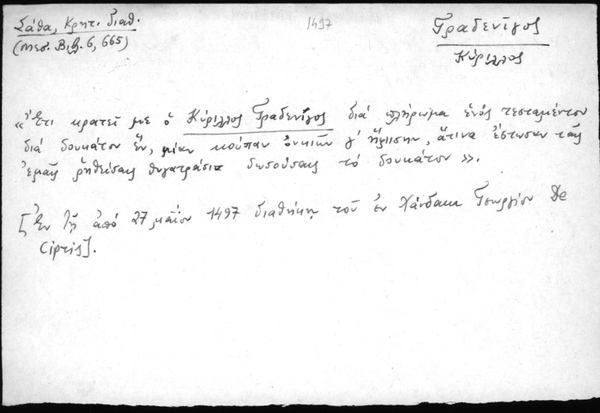 Σάθα, Κρητ. διαθ.
(Μεσ. Βιβλ. 6, 665)
1497
Γραδενίγος
Κύριλλος
«Ἔτι κρατεῖ με ὁ Κύριλλος Γραδενίγος διά πλήρωμα ἑνός τεσταμέντου
διά δουκάτον ἕν, μίαν κούπαν ὀνκιῶν γ' ἥμισην, ἅτινα ἔστωσαν ταῖς
ἐμαῖς ῥηθείσαις θυγατράσιν δωσούσαις τό δουκάτον».
[Ἐν τῇ ἀπό 27 μαΐου 1497 διαθήκῃ τοῦ ἐν Χάνδακι Γεωργίου De
Cipris].